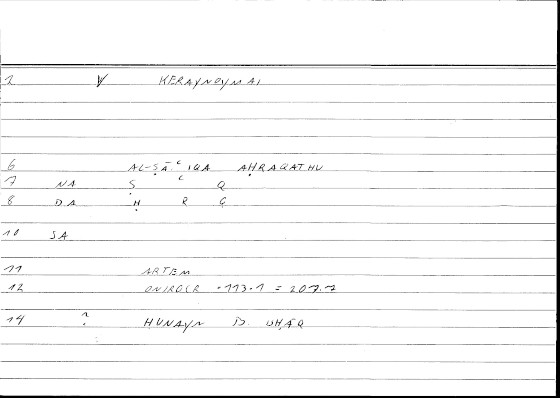 2 V KERAYNOYMAI
6 AL-ṢĀʿIQA AḤRAQATHU
7 NA Ṣ ʿ Q
8 DA Ḥ R Q
10 SA
11 ARTEM
12 ONIROCR 113.1 = 207.7
14 ? HUNAYN B.